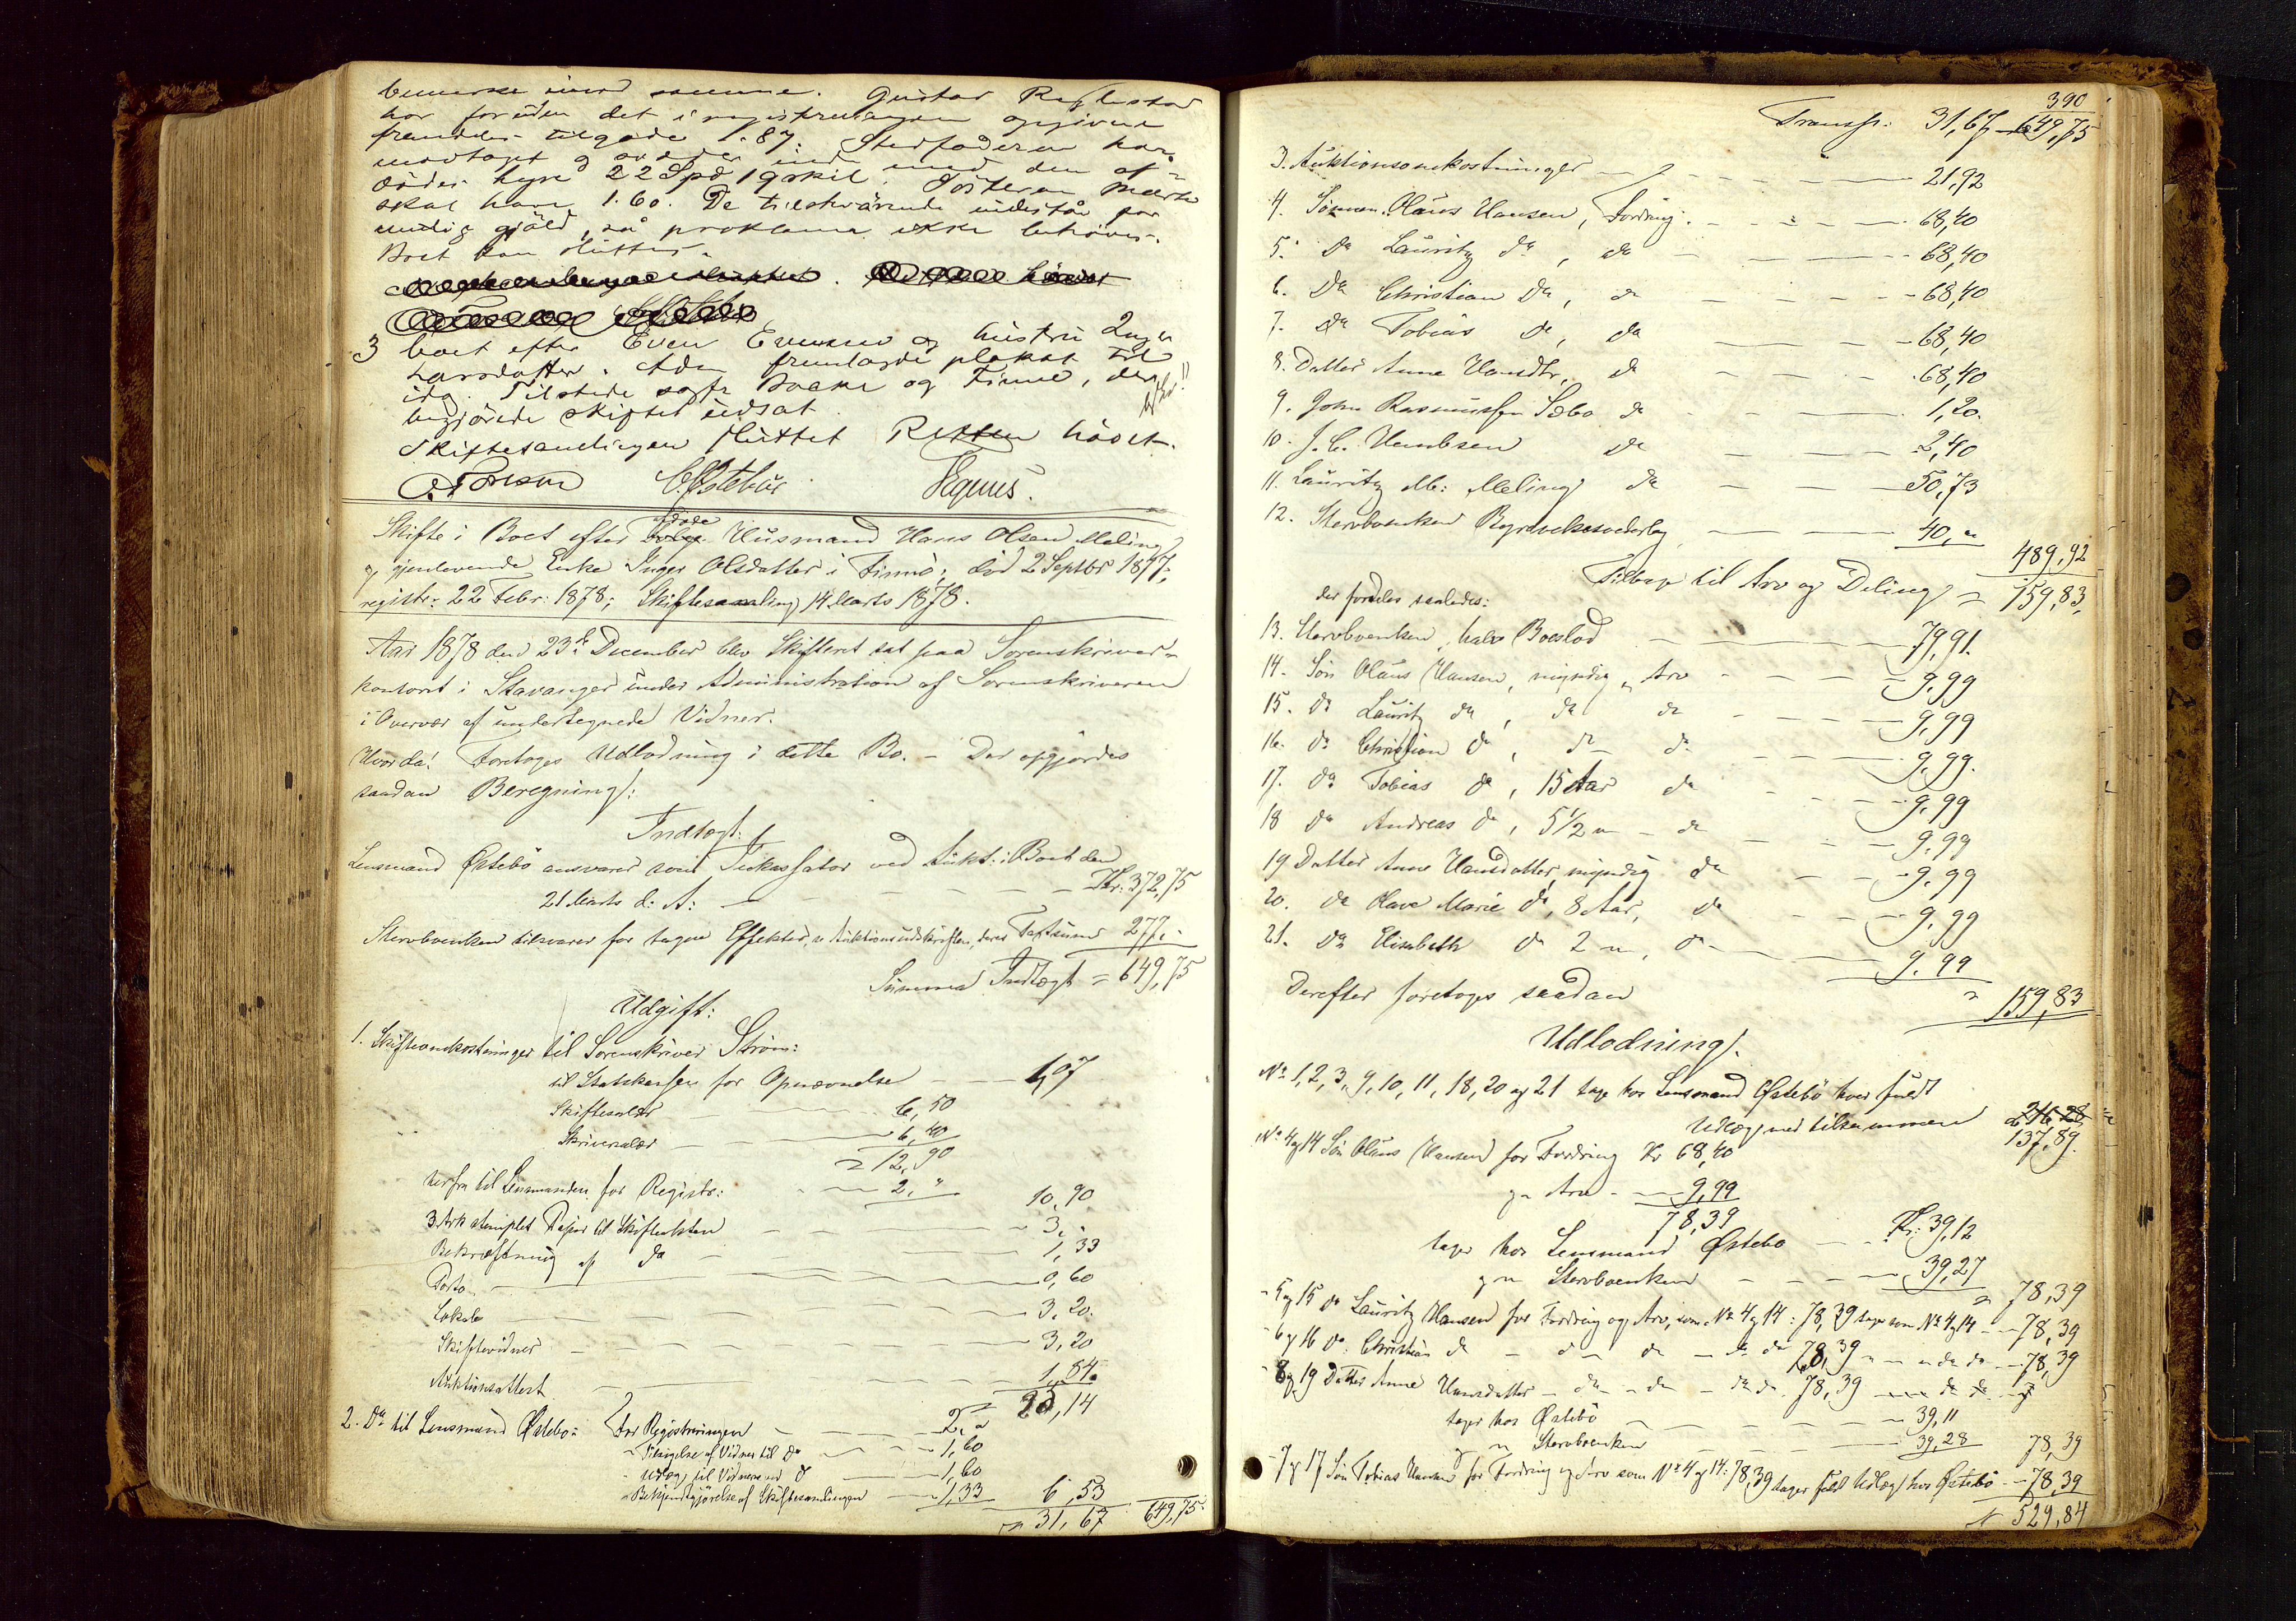 bemærke imod samme. Gustav
har foruden det i registreringen opgivne
fremdeles tilgode 1.87. Stedfaderen har
modtaget og ind med den af-
dödes hyre 22 Spd 19 skil. Söstren Marta
skal have 1.60. De tilstedeværende indestår for
mulig gjæld, så proklama ikke behöves.
Boet kan sluttes.
3 boet efter Even Evensen og hustru Inger
Larsdatter. fremlagde plakat til
idag. Tilstede sagfr Boake og Finne, der
begjörede skiftet udsat.
Skiftesamlingen sluttet Retten hævet.
C. Østebø
Skifte i Boet efter døde Husmand Hans Olsen Meling
og gjenlevende Enke Inger Olsdatter i Finnö; död 2 Septbr 1877;
registr: 22 Febr: 1878; Skiftesamling 14 Marts 1878.
Aar 1878 den 23de December blev Skifteret sat paa Sorenskriver-
kontoret i Stavanger under Administration af Sorenskriveren
i Overvær af undertegnede Vidner.
Hvor da: Foretoges Udlodning i dette Bo. – Der opgjordes
saadan Beregning:
Indtægt:
Lensmand Østebö ansvarer som Inkassator ved Aukt: i Boet den
21 Marts d: A: – – – – Kr: 372,75
Stervboenken tilsvarer for tagne Effekter, v Auktionsudskriften, deres Taxtsum 277,-
Summa Indtægt = 649,75
Udgift:
1. Skifteomkostninger til Sorenskriver Ström:
til Statskassen for Opnævnelse – – 1,07
Skiftesalær – – 6,50
Skriversalær – – 6,40
= 12,90
herfra til Lensmanden for Registr: – 2,"
10,90
3 Ark stemplet Papir til Skifteakten – – 3,-
Bekræftning af da – – 1,33
Porto – – 0,60
Lokale – – 3,20
Skiftevidner – – 3,20
Auktionsattest – – 1,84
= 25,14
2. Da til Lensmand Østebö: For Registreringen – 2,"
- Tilsigelse af Vidner til da – 1,60
- Udlæg til Vidnerne ved d – 1,60
- Bekjendtgjörelse af Skiftesamlingen – 1,33 6,53
= 31,67 649,75
390
Transp: 31,67 – 649,75
3. Auktionsomkostninger – – 21,92
4. Sönnen Olaus Hansen, Fordring – – 68,40
5. da Lauritz da, da – – 68,40
6. Da Christian Da, da – – 68,40
7. da Tobias d, da – – 68,40
8. Datter Anne Hansdtr, d – – 68,40
9. John Rasmussen Sæbö da – – 1,20.
10. J. C. Henrikssen da – – 2,40
11. Lauritz M: Meling da – – 50,73
12. Stervboenken Begravelsesvederlag – – 40,"
489,92
Tilbage til Arv og Deling = 159,83,
der fordeles saaledes:
13. Stervboenken, halv Boeslod – – 79,91.
14. Sön Olaus Hansen, myndig, Arv – – 9,99
15. da Lauritz da, da da – – 9,99
16. da Christian d, da da – – 9,99.
17. da Tobias d, 15 Aar da – – 9,99
18 da Andreas d, 5½ " – d – – 9,99
19 Datter Anne Hansdatter, myndig da – – 9,99
20. da Olava Marie d, 8 Aar, da – – 9,99
21. da Elisabeth da 2 ", d – – 9,99
= 159,83
Derefter foretoges saadan
Udlodning:
No 1, 2, 3, 9, 10, 11, 18, 20 og 21 tage hos Lensmand Østebö hver fuldt
Udlæg med tilsammen 137,89.
No 4 og 14 Sön Olaus Hansen for Fordring Kr 68,40
for Arv – – 9,99
78,39
tager hos Lensmand Østebö – – Kr: 39,12
" Stervboenken – – – 39,27
= 78,39
- 5 og 15 da Lauritz Hansen for Fordring og Arv, som No 4 og 14: 78,39 tages som No 4 og 14 – – 78,39
- 6 og 16 da Christian d – d – da – da da 78,39 – – – da da – – 78,39
- 8 og 19 Datter Anne Hansdatter – da – da – da da 78,39 – – – da da –
tager hos Østebö – – 39,11
" Stervboenken – – 39,28 78,39
- 7 og 17 Sön Tobias Hansen for Fordring og Arv som No 4 og 14: 78,39 tager fuldt Udlæg hos Østebö – 78,39
529,84